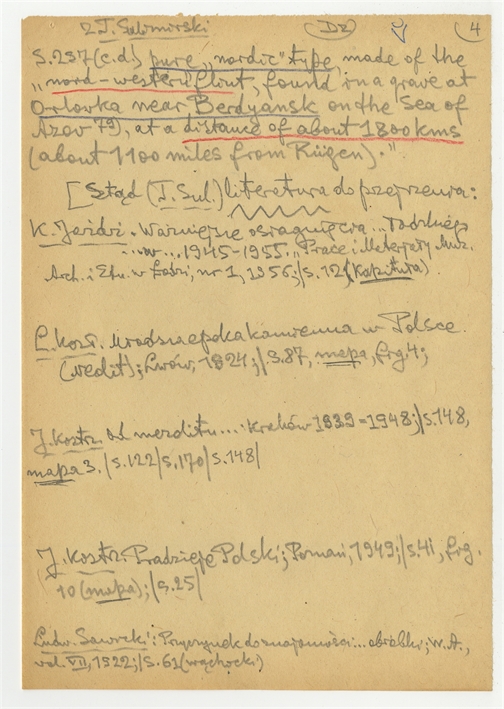 z T. Sulimirski Dz 4
S. 237 (c.d.) pure „nordic" type made of the
„nord-western flint, found in a grave at
Orlovka near Berdyansk on the Sea of
Azov 79), at a distance of about 1800 kms
(about 1100 miles from Rügen)."
[Stąd (T. Sul.) literatura do przejrzenia:
K. Jażdż. Ważniejsze osiągnięcia ...
... 1945-1955. „Prace i Materjały Muz.
Arch. i Etn. w Łodzi, nr 1, 1956; /s. 12
L. Kozł. Młodsza epoka kamienna w Polsce
(neolit); Lwów, 1924; /S. 87, mapa, fig. 4;
J. Kostrz. Od mezolitu ...: Kraków 1939-1948; /s. 148,
mapa 3. /s. 122/ s. 170/ s. 148/
J. Kostrz. Pradzieje Polski; Poznań, 1949; /s. 41, fig.
10 (mapa); /s. 25/
Ludw. Sawicki: Przyczynek do znajomości ... obróbki; W. A.,
vol. VII, 1922; /S. 61 (wąchocki)